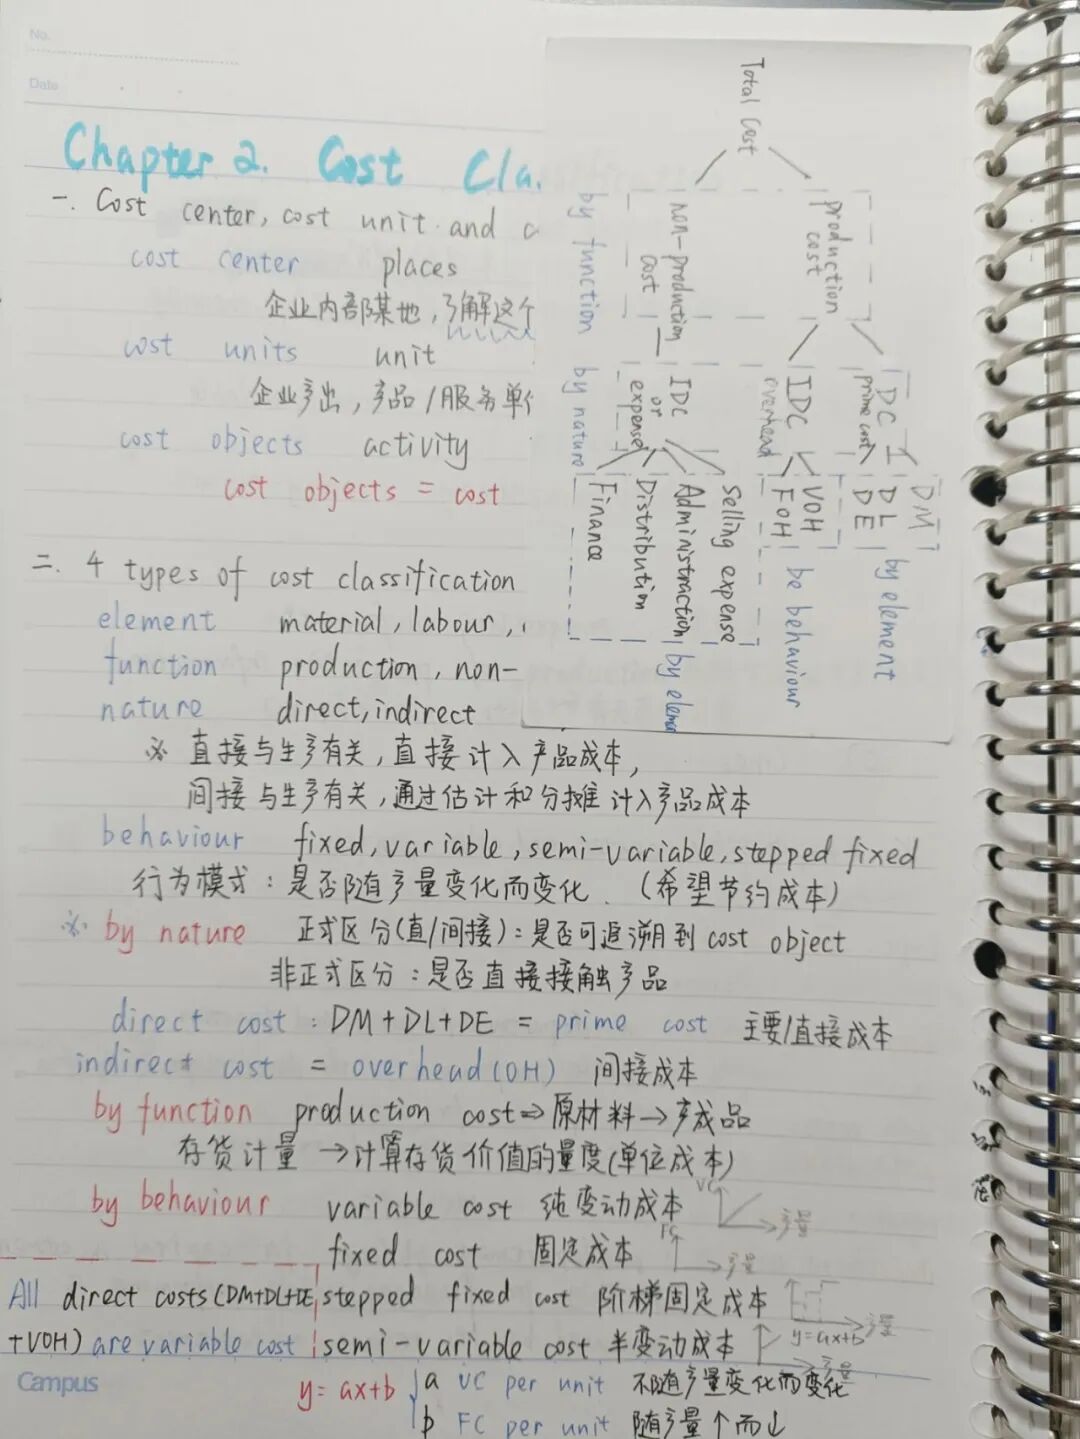 No.
Date
Chapter 2. Cost Cla
一. Cost center, cost unit and c
cost center places
企业内部某地，了解这个
cost units unit
企业产出，产品/服务单位
cost objects activity
cost objects = cost
二. 4 types of cost classification
element material, labour,
function production, non-
nature direct, indirect
※ 直接与生产有关，直接计入产品成本，
间接与生产有关，通过估计和分摊计入产品成本
behaviour fixed, variable, semi-variable, stepped fixed
行为模式：是否随产量变化而变化.（希望节约成本）
※ by nature 正式区分(直/间接)：是否可追溯到 cost object
非正式区分：是否直接接触产品
direct cost : DM+DL+DE = prime cost 主要/直接成本
indirect cost = overhead(OH) 间接成本
by function production cost⇒原材料→产成品
存货计量 →计算存货价值的量度(单位成本)
by behaviour variable cost 纯变动成本 VC 产量
fixed cost 固定成本 FC 产量
All direct costs(DM+DL+DE stepped fixed cost 阶梯固定成本 产量
+VOH) are variable cost semi-variable cost 半变动成本 y=ax+b 产量
y=ax+b a VC per unit 不随产量变化而变化
b FC per unit 随产量↑而↓
Campus
Total cost
production cost
non-production cost
by function
DC prime cost
IDC overhead
IDC or expense
by nature
DM
DL
DE
by element
VOH
FOH
be behaviour
Selling expense
Administraction
Distribution
Finance
by eleme